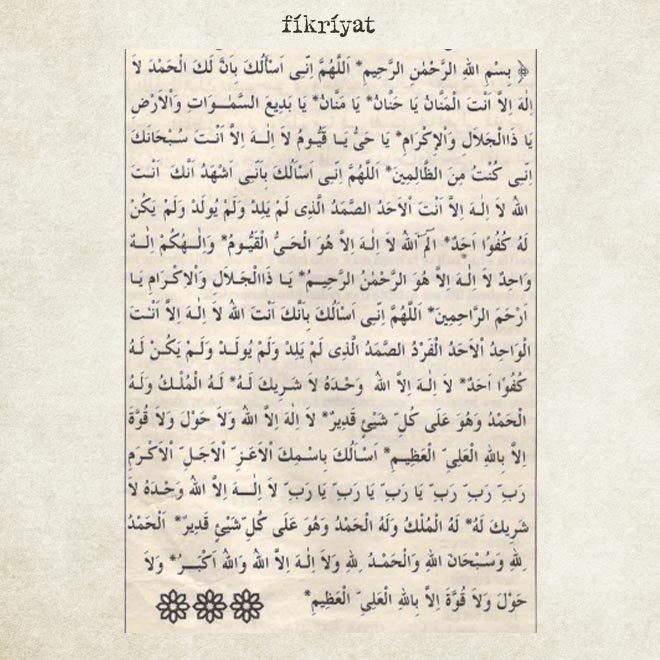 fikriyat
﴿ بِسْمِ اللهِ الرَّحْمٰنِ الرَّحِيمِ* اَللّٰهُمَّ اِنِّى اَسْأَلُكَ بِاَنَّ لَكَ الْحَمْدَ لاَ
اِلٰهَ اِلاَّ اَنْتَ الْمَنَّانُ يَا حَنَّانُ* يَا مَنَّانُ* يَا بَدِيعَ السَّمٰوَاتِ وَاْلاَرْضِ
يَا ذَاالْجَلاَلِ وَاْلاِكْرَامِ* يَا حَىُّ يَا قَيُّومُ لاَ اِلٰهَ اِلاَّ اَنْتَ سُبْحَانَكَ
اِنِّى كُنْتُ مِنَ الظَّالِمِينَ* اَللّٰهُمَّ اِنِّى اَسْأَلُكَ بِاَنِّى اَشْهَدُ اَنَّكَ اَنْتَ
اللهُ لاَ اِلٰهَ اِلاَّ اَنْتَ اْلاَحَدُ الصَّمَدُ الَّذِى لَمْ يَلِدْ وَلَمْ يُولَدْ وَلَمْ يَكُنْ
لَهُ كُفُوًا اَحَدٌ* الٓمٓ اَللهُ لاَ اِلٰهَ اِلاَّ هُوَ الْحَىُّ الْقَيُّومُ* وَاِلٰهُكُمْ اِلٰهٌ
وَاحِدٌ لاَ اِلٰهَ اِلاَّ هُوَ الرَّحْمٰنُ الرَّحِيمُ* يَا ذَاالْجَلاَلِ وَاْلاِكْرَامِ يَا
اَرْحَمَ الرَّاحِمِينَ* اَللّٰهُمَّ اِنِّى اَسْأَلُكَ بِاَنَّكَ اَنْتَ اللهُ لاَ اِلٰهَ اِلاَّ اَنْتَ
الْوَاحِدُ اْلاَحَدُ الْفَرْدُ الصَّمَدُ الَّذِى لَمْ يَلِدْ وَلَمْ يُولَدْ وَلَمْ يَكُنْ لَهُ
كُفُوًا اَحَدٌ* لاَ اِلٰهَ اِلاَّ اللهُ وَحْدَهُ لاَ شَرِيكَ لَهُ* لَهُ الْمُلْكُ وَلَهُ
الْحَمْدُ وَهُوَ عَلَى كُلِّ شَيْئٍ قَدِيرٌ* لاَ اِلٰهَ اِلاَّ اللهُ وَلاَ حَوْلَ وَلاَ قُوَّةَ
اِلاَّ بِاللهِ الْعَلِىِّ الْعَظِيمِ* اَسْأَلُكَ بِاسْمِكَ اْلاَعَزِّ اْلاَجَلِّ اْلاَكْرَمِ
رَبِّ رَبِّ رَبِّ يَا رَبِّ يَا رَبِّ يَا رَبِّ لاَ اِلٰهَ اِلاَّ اللهُ وَحْدَهُ لاَ
شَرِيكَ لَهُ* لَهُ الْمُلْكُ وَلَهُ الْحَمْدُ وَهُوَ عَلَى كُلِّ شَيْئٍ قَدِيرٌ* اَلْحَمْدُ
لِلهِ وَسُبْحَانَ اللهِ وَالْحَمْدُ لِلهِ وَلاَ اِلٰهَ اِلاَّ اللهُ وَاللهُ اَكْبَرُ* وَلاَ
حَوْلَ وَلاَ قُوَّةَ اِلاَّ بِاللهِ الْعَلِىِّ الْعَظِيمِ*